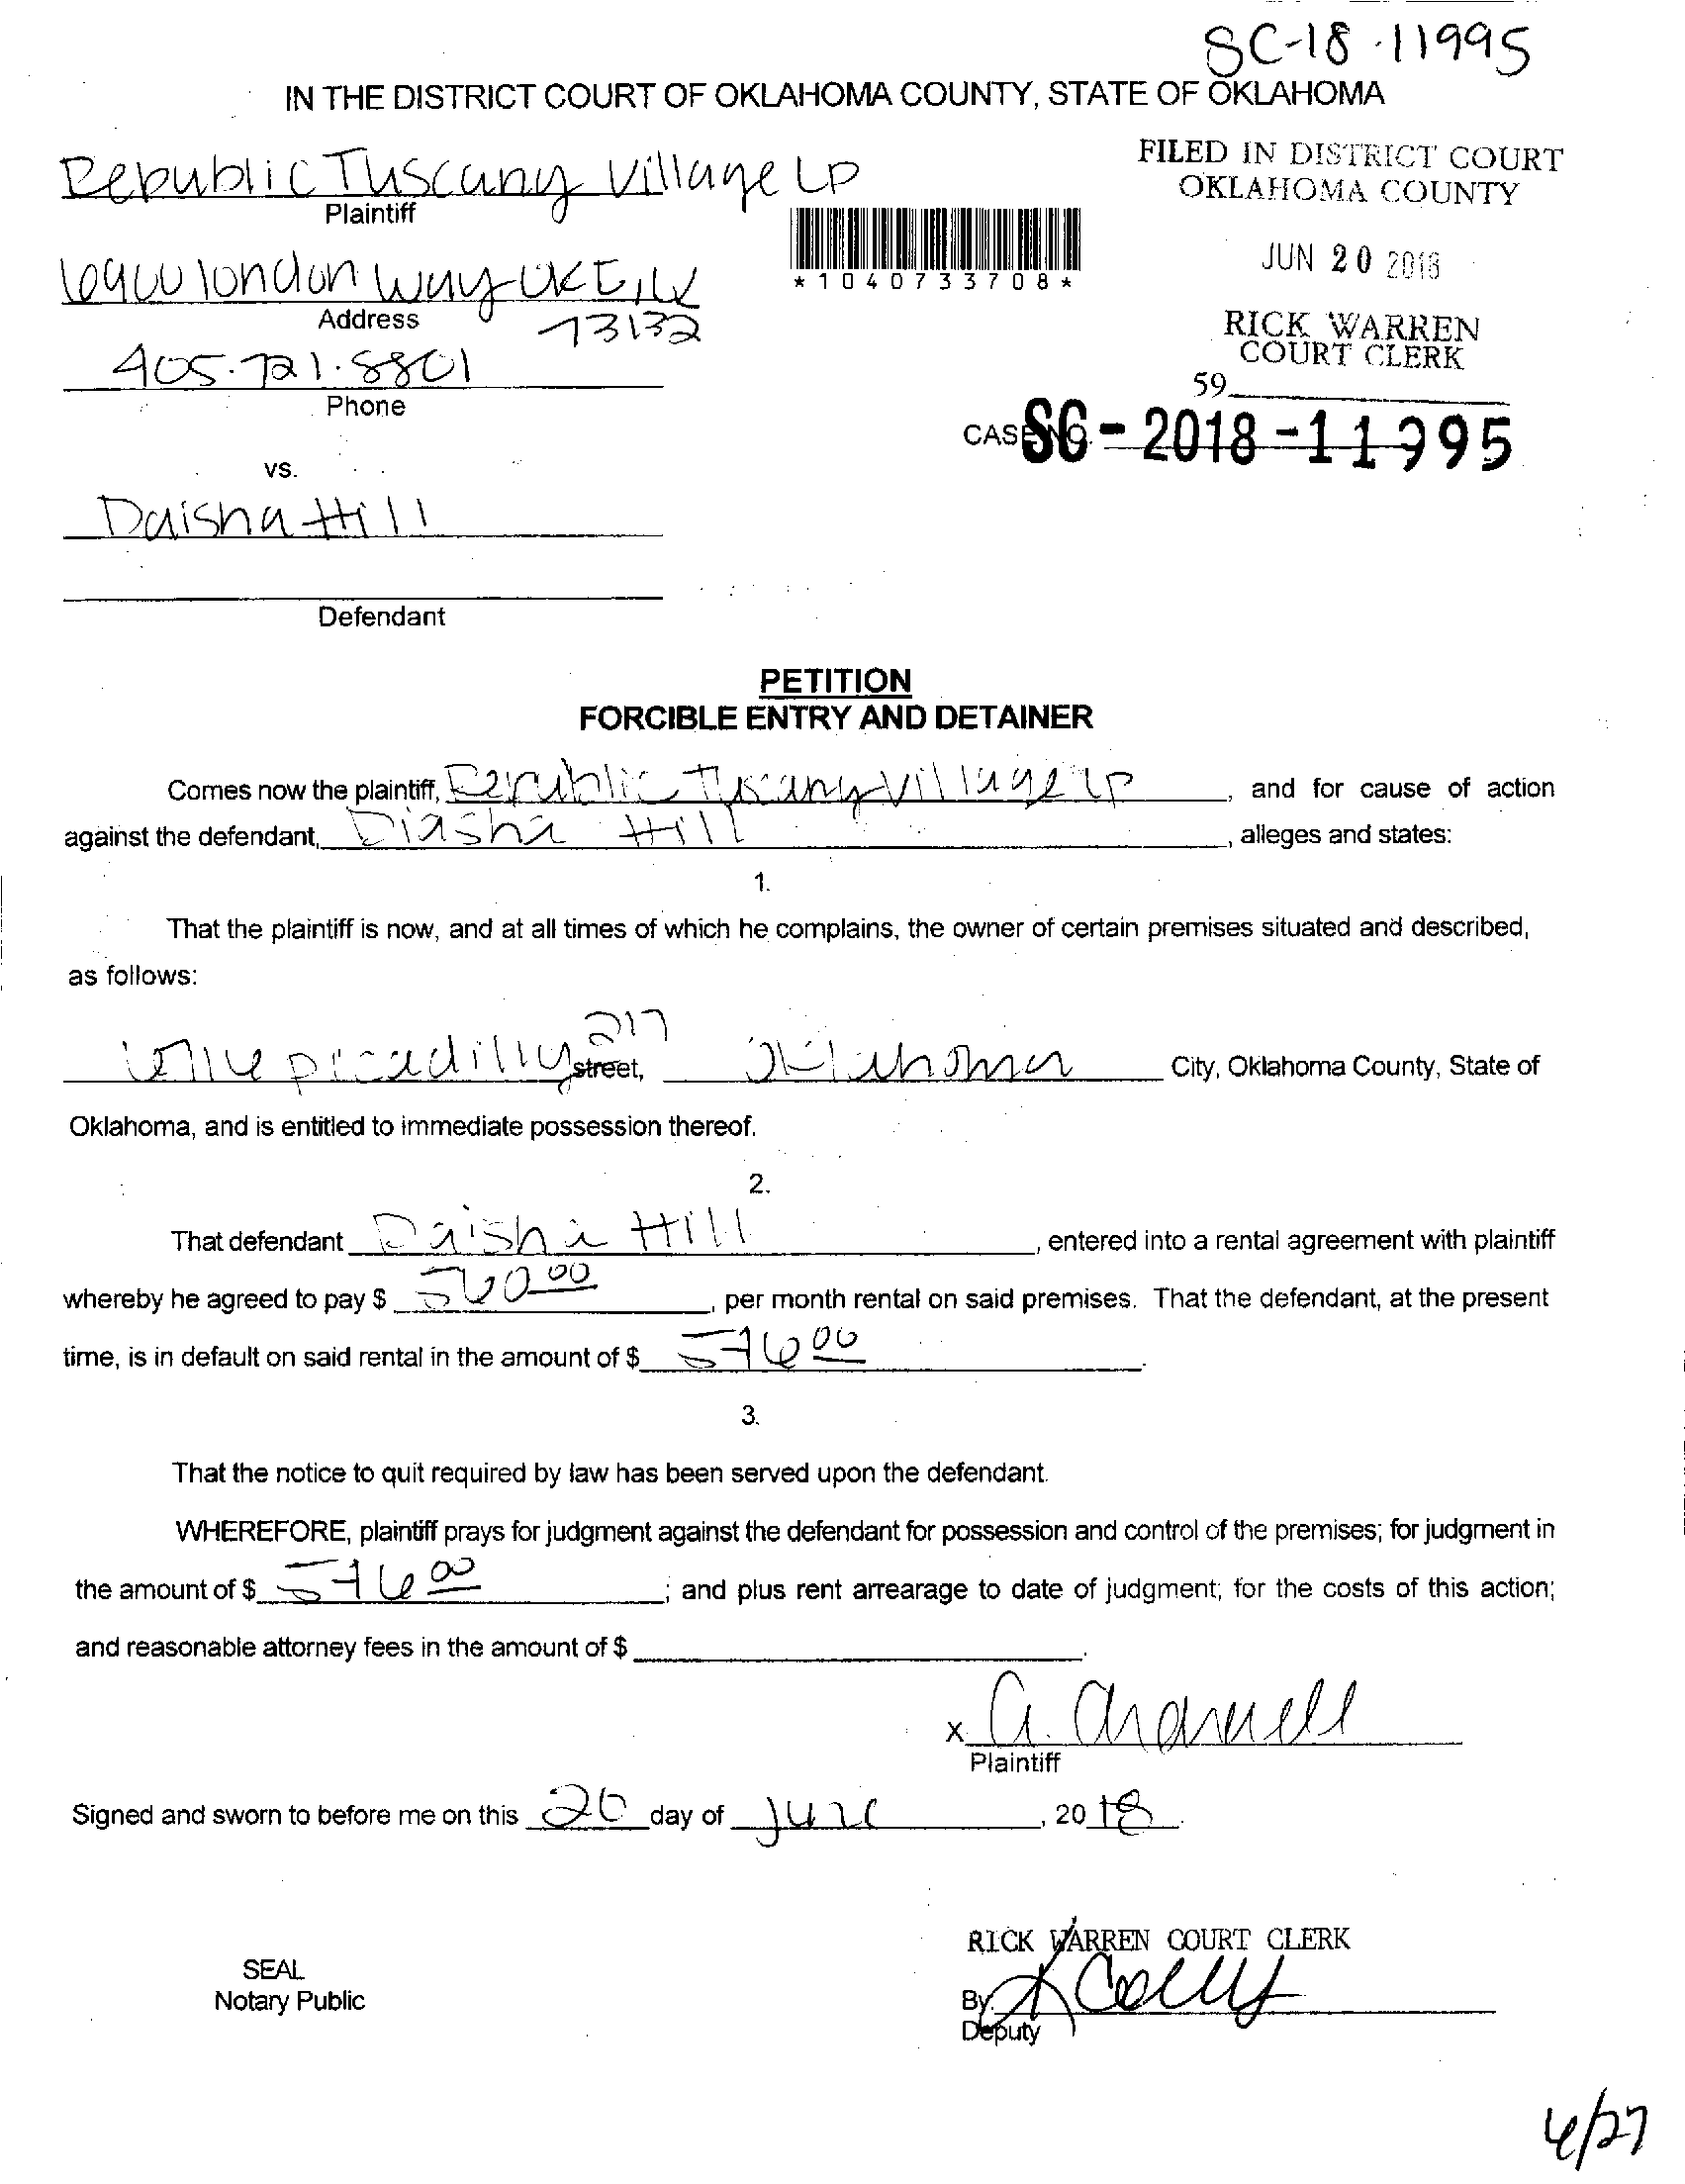 SC-18-11995
IN THE DISTRICT COURT OF OKLAHOMA COUNTY, STATE OF OKLAHOMA
Republic Tuscany Village LP
Plaintiff
FILED IN DISTRICT COURT
OKLAHOMA COUNTY
JUN 20 2018
RICK WARREN
COURT CLERK
59
*1040733708*
london way OKC, OK
Address
73132
405.721.8801
Phone
CASE NO.
SC-2018-11995
vs.
Daisha Hill
Defendant
PETITION
FORCIBLE ENTRY AND DETAINER
Comes now the plaintiff, Republic Tuscany Village LP, and for cause of action
against the defendant, Diasha Hill, alleges and states:
1.
That the plaintiff is now, and at all times of which he complains, the owner of certain premises situated and described,
as follows:
217
picadilly street, Oklahoma City, Oklahoma County, State of
Oklahoma, and is entitled to immediate possession thereof.
2.
That defendant Daisha Hill, entered into a rental agreement with plaintiff
whereby he agreed to pay $ 560.00, per month rental on said premises. That the defendant, at the present
time, is in default on said rental in the amount of $ 576 00.
3.
That the notice to quit required by law has been served upon the defendant.
WHEREFORE, plaintiff prays for judgment against the defendant for possession and control of the premises; for judgment in
the amount of $ 576 00; and plus rent arrearage to date of judgment; for the costs of this action;
and reasonable attorney fees in the amount of $
X
Plaintiff
Signed and sworn to before me on this 20 day of June, 2018.
RICK WARREN COURT CLERK
SEAL
Notary Public
By
Deputy
6/27